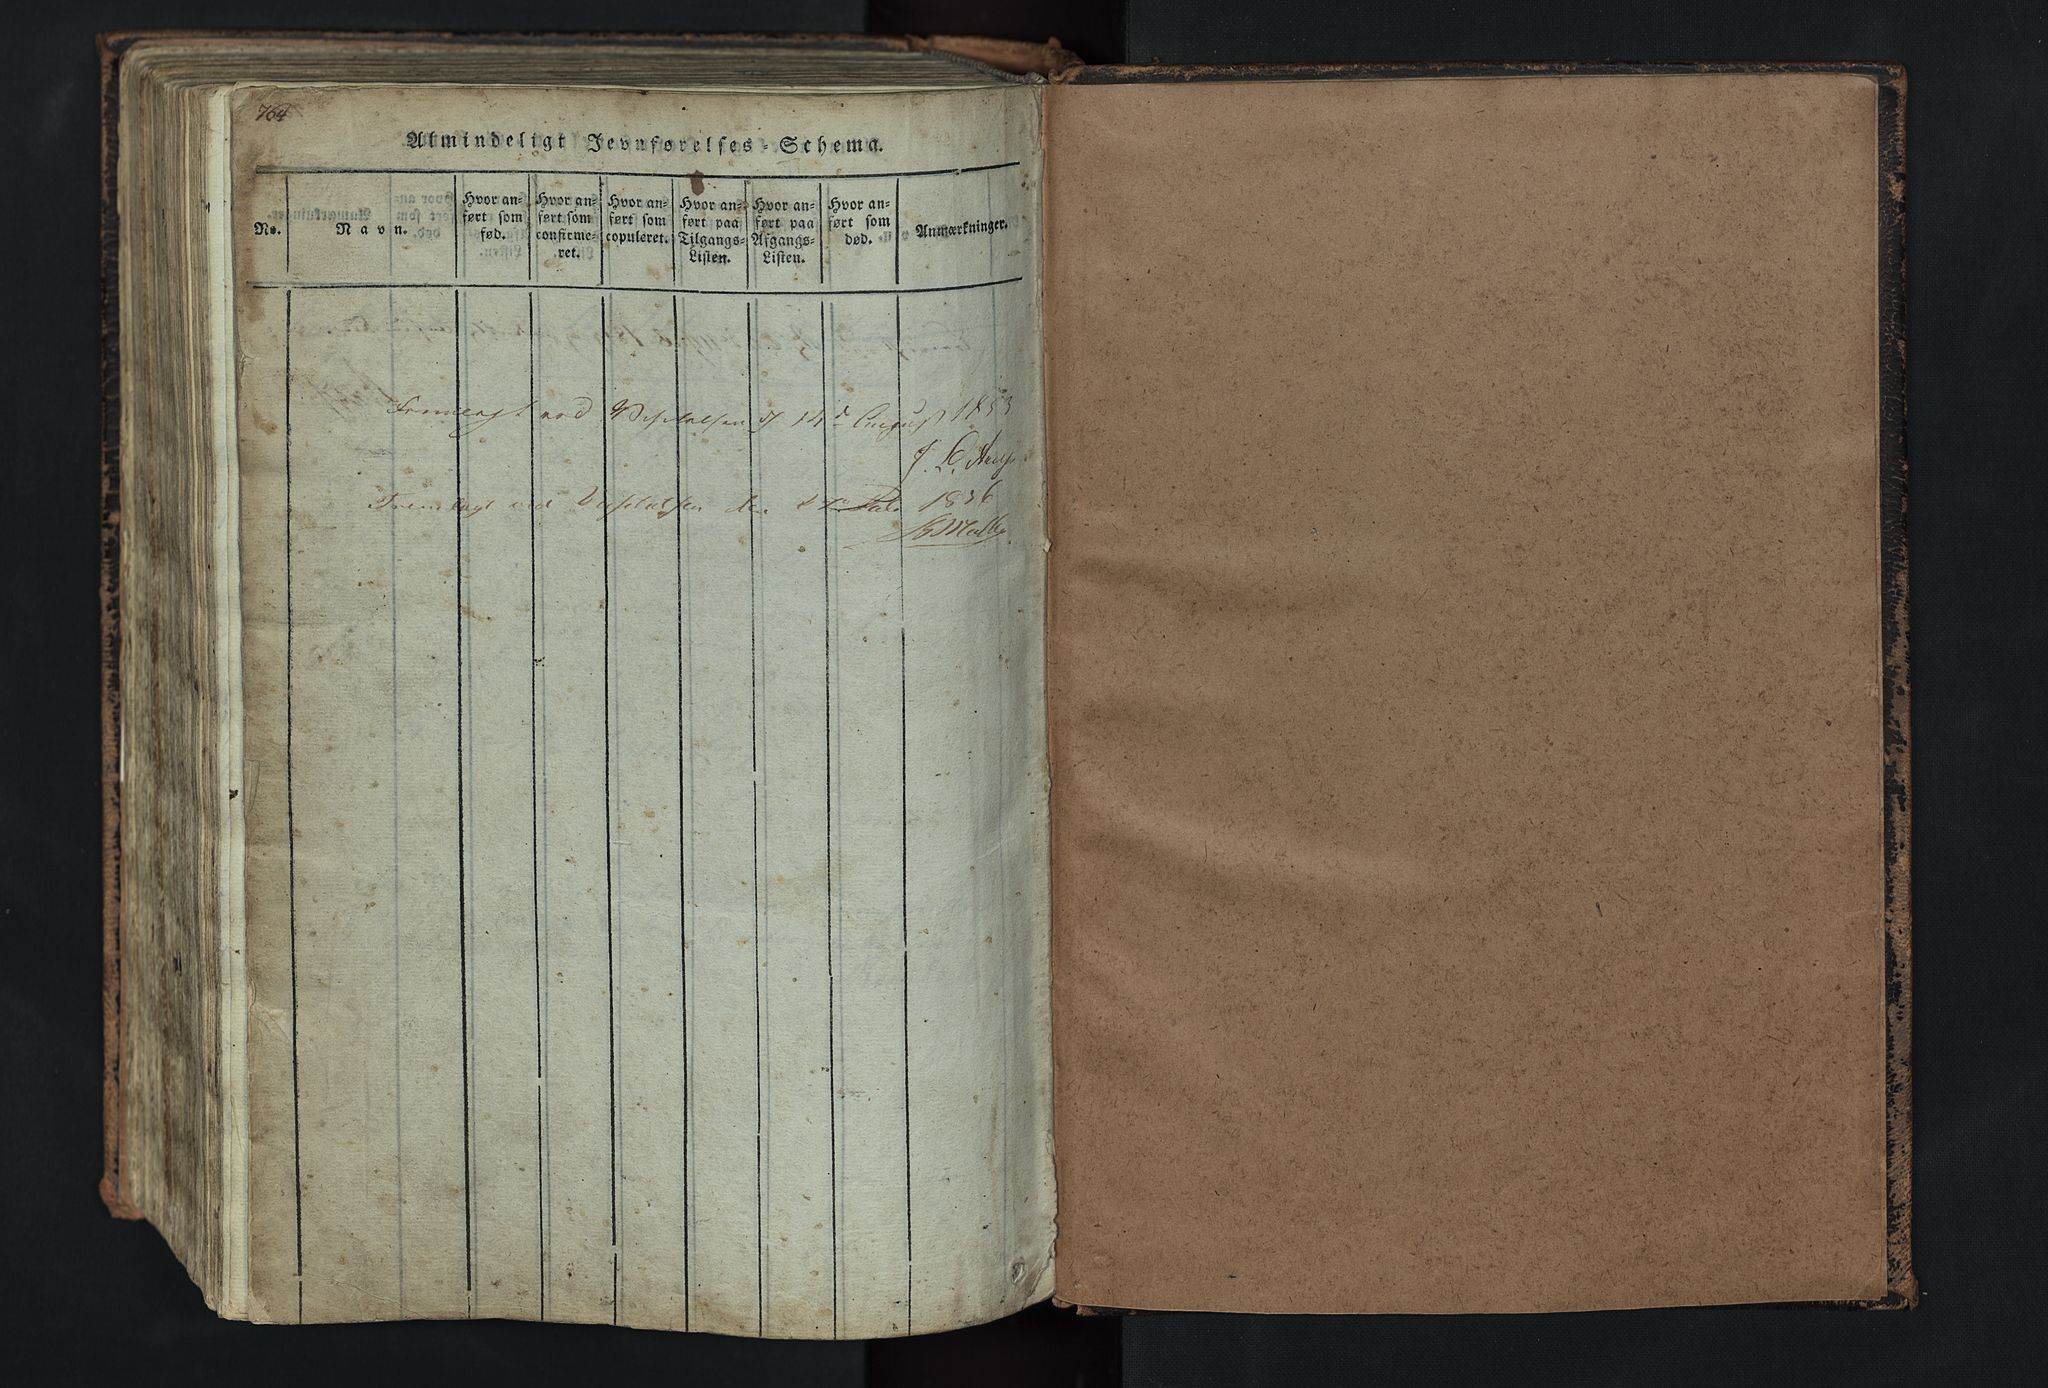 764
Almindeligt Jevnførelses-Schema.
No.
Navn.
Hvor an-
ført som
fød.
Hvor an-
ført som
confirme-
ret.
Hvor an-
ført som
copuleret.
Hvor an-
ført paa
Tilgangs-
Listen.
Hvor an-
ført paa
Afgangs-
Listen.
Hvor an-
ført som
død.
Anmærkninger.
Fremlagt ved Visitatsen d. 14de August 1833
Fremlagt ved Visitatsen den 1836